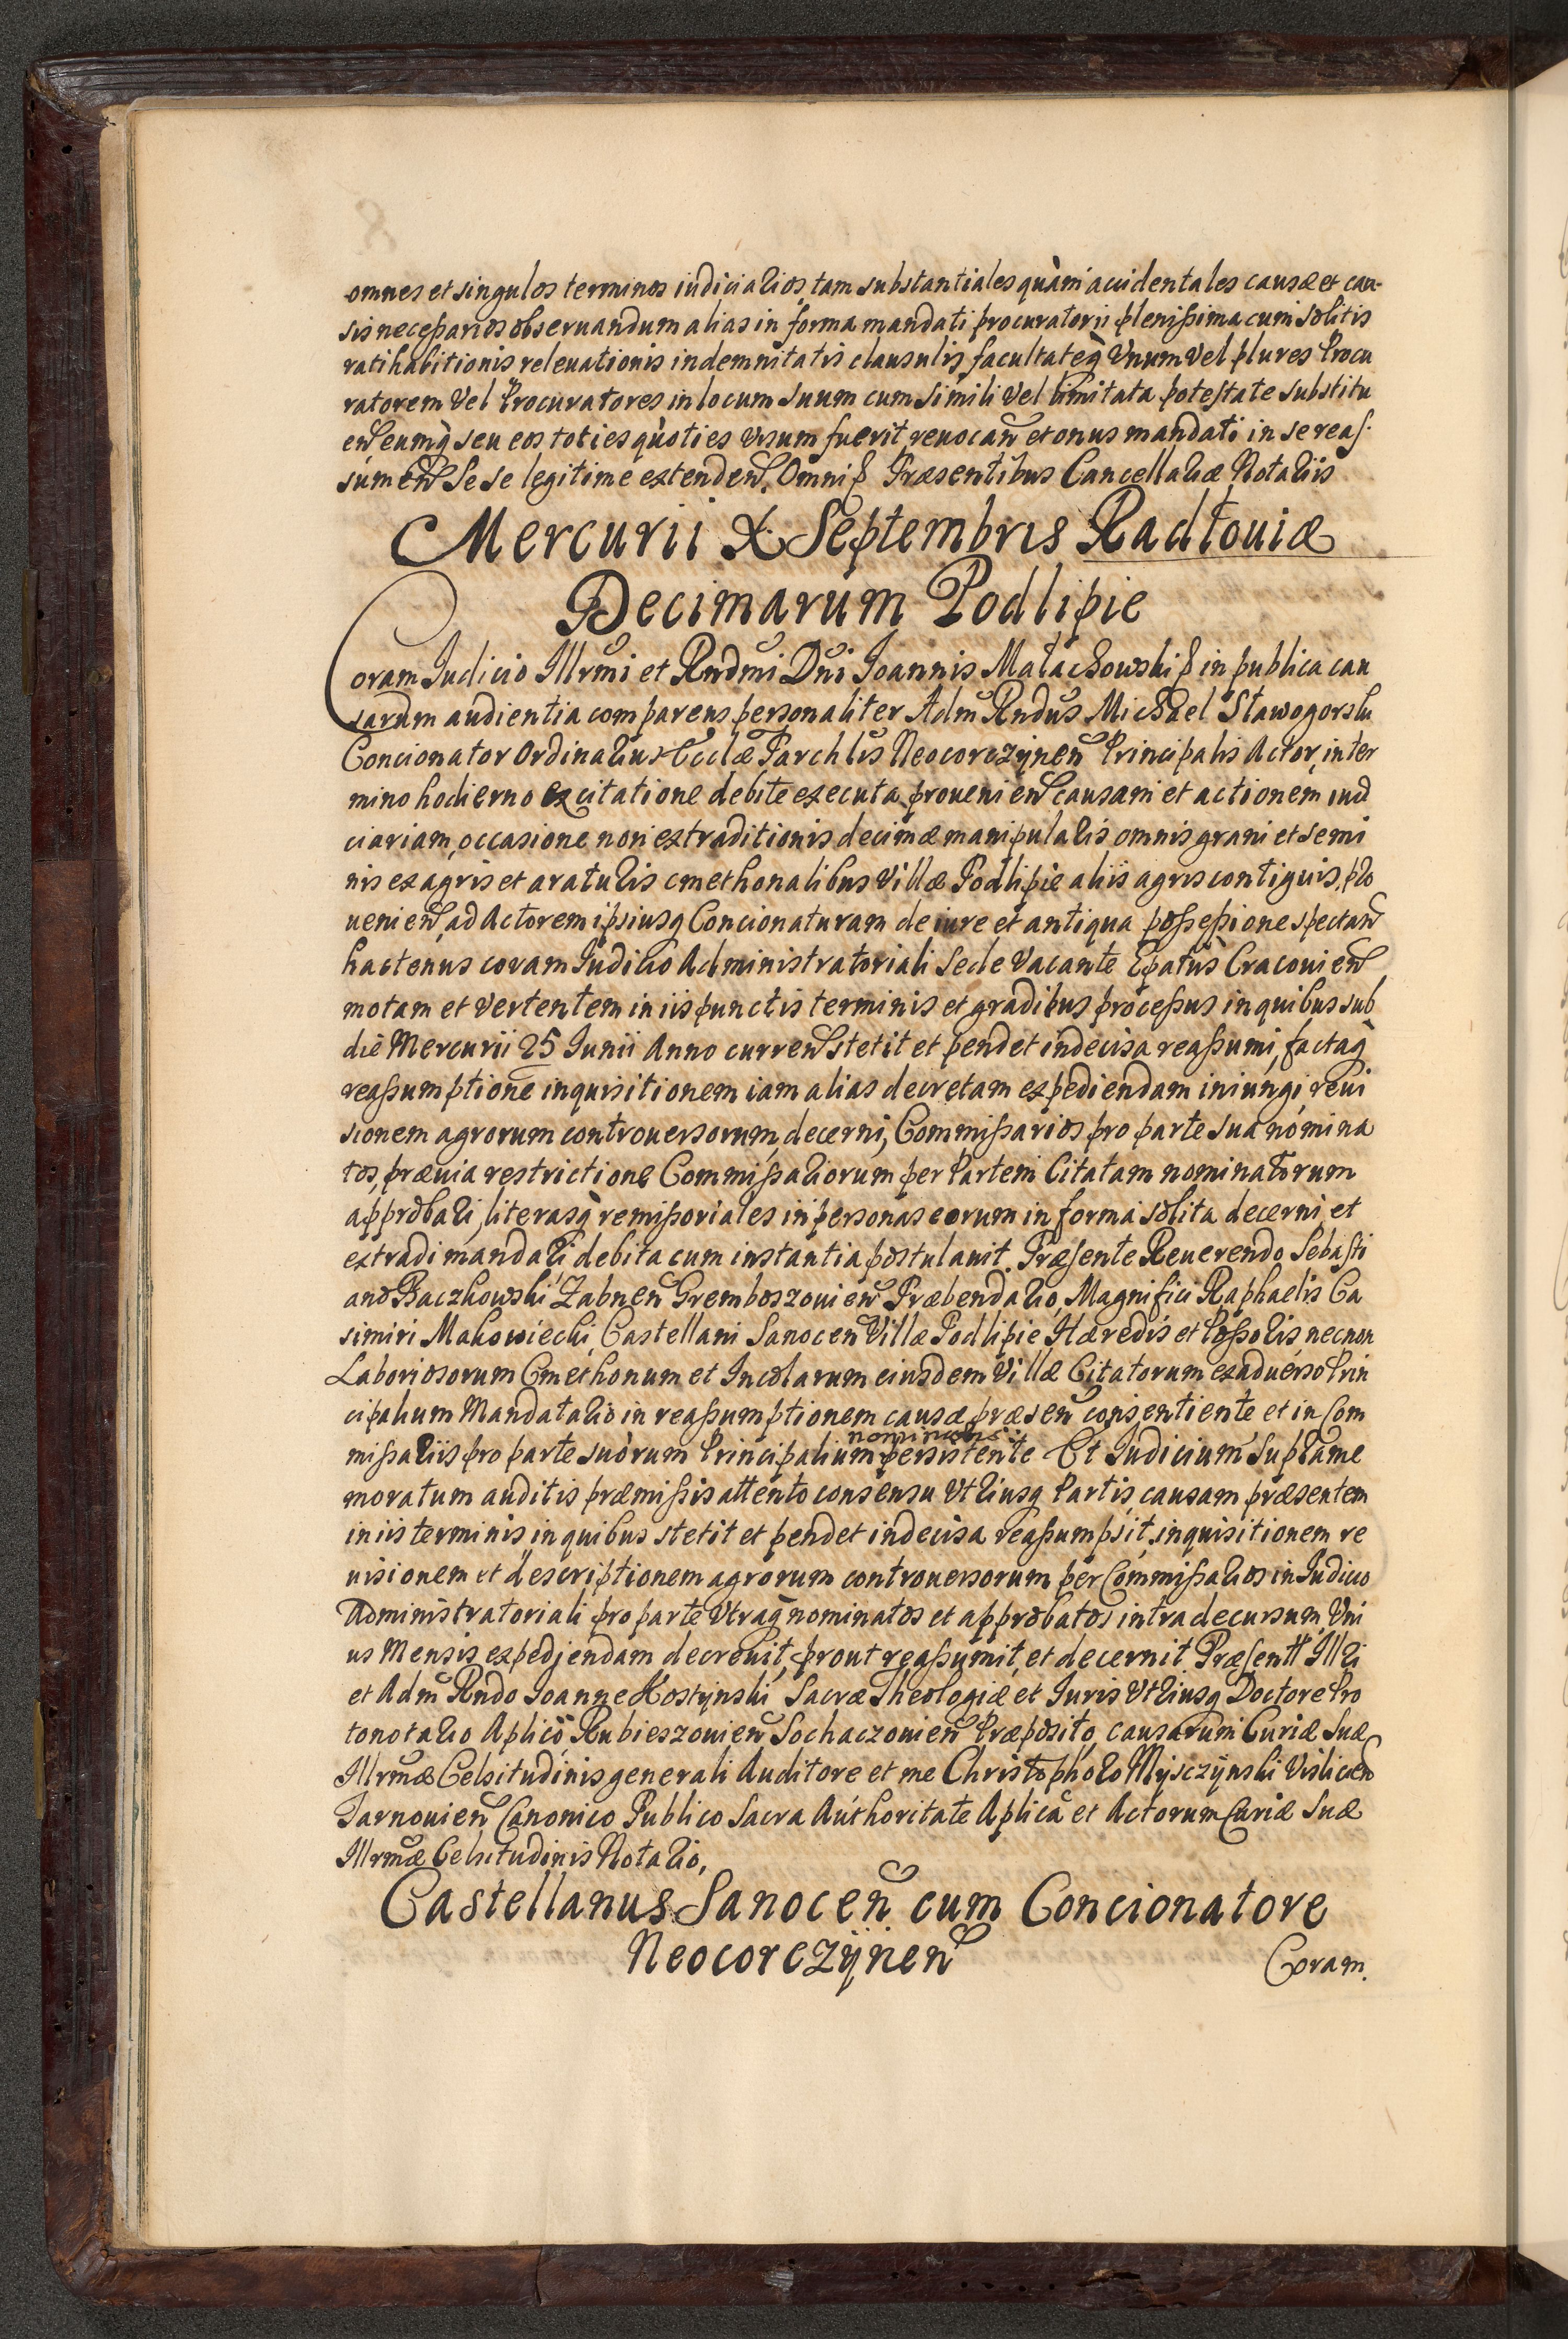 omnes et singulos terminos iudiciarios, tam substantiales quàm accidentales causæ et cau-
sis necessarios obseruandum alias in forma mandati procuratorii plenissima cum solitis
ratihabitionis releuationis indemnitatis clausulis, facultateq̀ Vnum Vel plures Procu
ratorem Vel Procuratores in locum suum cum simili Vel limitata potestate substitu
en̄ eumq̀ seu eos toties quòties visum fuerit, reuocan̄ et onus mandati in se reas-
sumen̄ Se se legitime extenden̄. Omni ꝭ Præsentibus Cancellariæ Notariis
Mercurii X Septembris Radłouiæ
Decimarum Podlipie
Coram Iudicio Illrmi et Rndmi Dn̄i Ioannis Małachowski ꝭ in publica cau
sarum audientia comparens personaliter Adm̄ Rndus Michael Stawogorski
Concionator Ordinarius Eccl̄æ Parchlis Neocorczÿnen̄ Principalis Actor, in ter
mino hodierno ex citatione debite executa, prouenien̄ causam et actionem iud
ciariam, occasione non extraditionis decimæ manipularis omnis grani et semi
nis ex agris et araturis cmethonalibus Villæ Podlipie aliis agris contiguis, pro
uenien̄, ad Actorem ipsiusq Concionaturam de iure et antiqua possessione spectan̄
hactenus coram Iudicio Administratoriali Sede Vacante Ep̄atus Cracouien̄
motam et vertentem in iis punctis terminis et gradibus processus in quibus sub
die Mercurii 25 Iunii Anno curren̄ stetit et pendet indecisa reassumi, factaq̀
reassumptione inquisitionem iam alias decretam expediendam iniungi, reui
sionem agrorum controuersorum, decerni, Commissarios pro parte sua nomina
tos, præuia restrictione Commissariorum per Partem Citatam nominatorum
approbari, literasq̀ remissoriales in personas eorum in forma solita decerni, et
extradi mandari debita cum instantia postulauit. Præsente Reuerendo Sebasti
ano Baczkowski Zabnen̄ Gremboszouien̄ Præbendario, Magnifici Raphaelis Ca
simiri Makowiecki, Castellani Sanocen̄ Villæ Podlipie Hæredis et Possoris necnon
Laboriosorum Cmethonum et Incolarum eiusdem Villæ Citatorum ex aduerso Prin
cipalium Mandatario in reassumptionem causæ præsen̄ consentiente et in Com
missariis pro parte suorum Principalium nominatis persistente Et Iudicium Supra me
moratum auditis præmissis attento consensu Vtriusq Partis, causam præsentem
in iis terminis in quibus stetit et pendet indecisa reassumpsit, inquisitionem re
uisionem et descriptionem agrorum controuersorum per Commissarios in Iudicio
Administratoriali pro parte Vtraq̀ nominatos et approbatos intra decursum Vni
us Mensis expediendam decreuit, prout reassumit, et decernit Præsentt Illri
et Adm̄ Rndo Ioanne Kostynski Sacræ Theologiæ et Iuris Vtriusq Doctore Pro
tonotario Ap̄lico Rubieszouien̄ Sochaczouien̄ Præposito, causarum Curiæ Suæ
Illrmæ Celsitudinis generali Auditore et me Christophoro Mÿsczÿnski Vislicien̄
Tarnouien̄ Canonico Publico Sacra Authoritate Ap̄lica et Actorum Curiæ Suæ
Illrmæ Celsitudinis Notario,
Castellanus Sanocen̄ cum Concionatore
Neocorczÿnen̄
Coram.